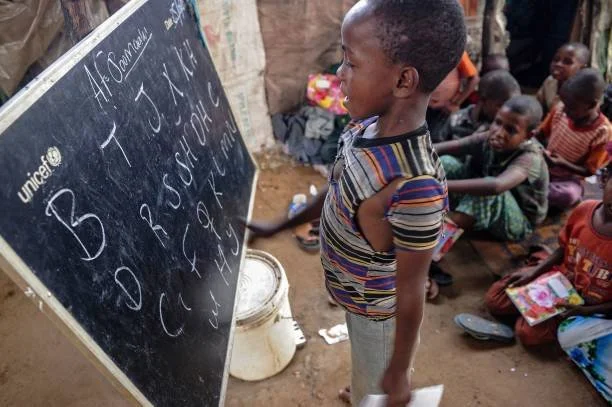 unicef
Af Soomaali
B T J X KH
D R S SH DH C
G F Q K L M N
W H Y